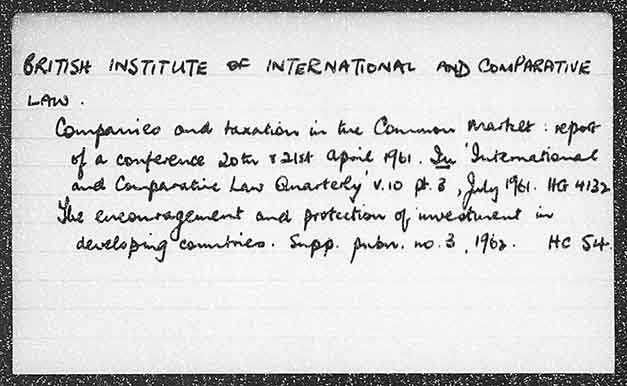 BRITISH INSTITUTE OF INTERNATIONAL AND COMPARATIVE
LAW.
Companies and taxation in the Common Market: report
of a conference 20th & 21st April 1961. In 'International
and Comparative Law Quarterly' v.10 pt. 3, July 1961. HG 4132
The encouragement and protection of investment in
developing countries. Supp. pubn. no. 3, 1962. HC 54.